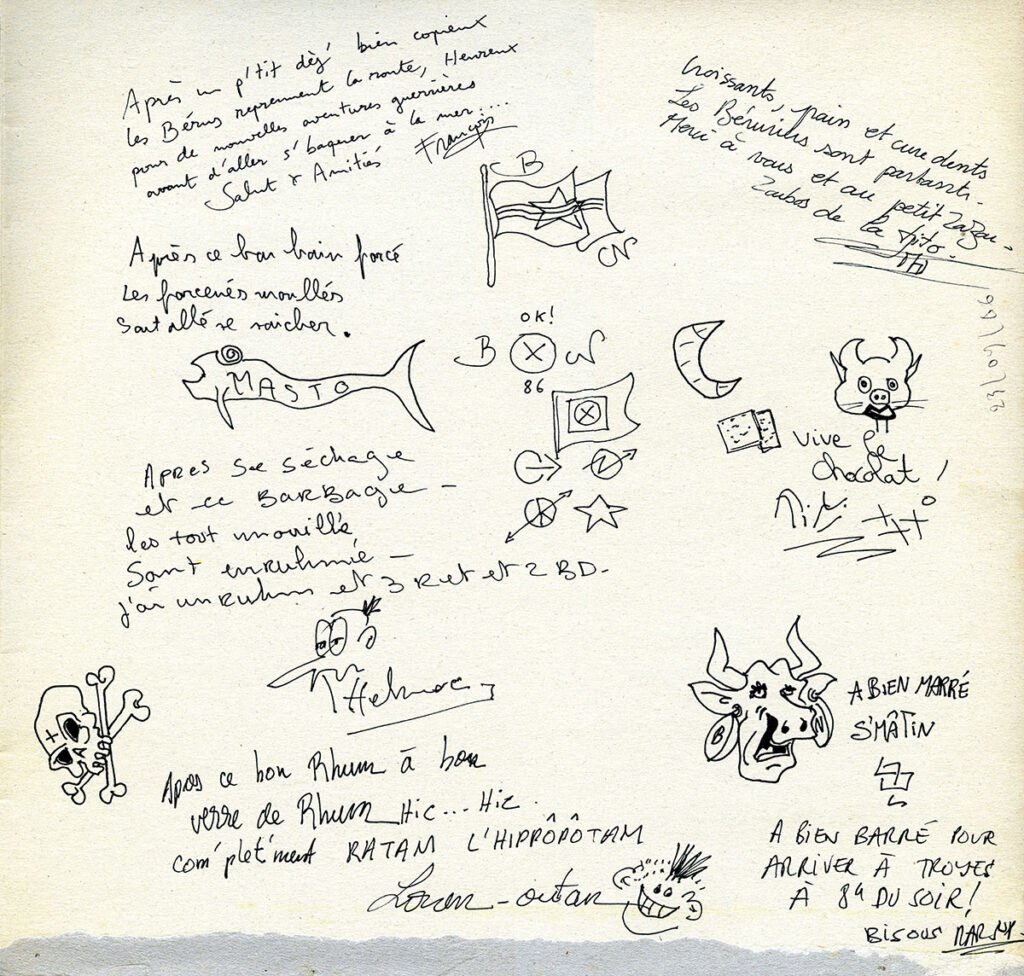 Après un p'tit déj' bien copieux
les Bérus reprennent la route, Heureux
pour de nouvelles aventures guerrières
avant d'aller s'baquer à la mer....
Salut & Amitiés François
Croissants, pain et cure dents
Les Béruriers sont partants.
Merci à vous et au petit
de la
B
Après ce bon bain forcé
Les forcenés mouillés
Sont allé se
MASTO
OK!
B
86
23/04/86
Vive le
chocolat !
Apres se séchage
et ce BARBAGE -
les tout mouillé
Sont enRuhmé -
j'ai un Ruhm et 3 R et et 2 BD -
B
A BIEN MARRÉ
S'MÂTIN
Apres ce bon Rhum à bon
verre de Rhum Hic... Hic.
com'plet'ment RATAM L'HIPPÔPÔTAM
Loran-outan
A BIEN BARRÉ POUR
ARRIVER À TROYES
À 8H DU SOIR!
BISOUS